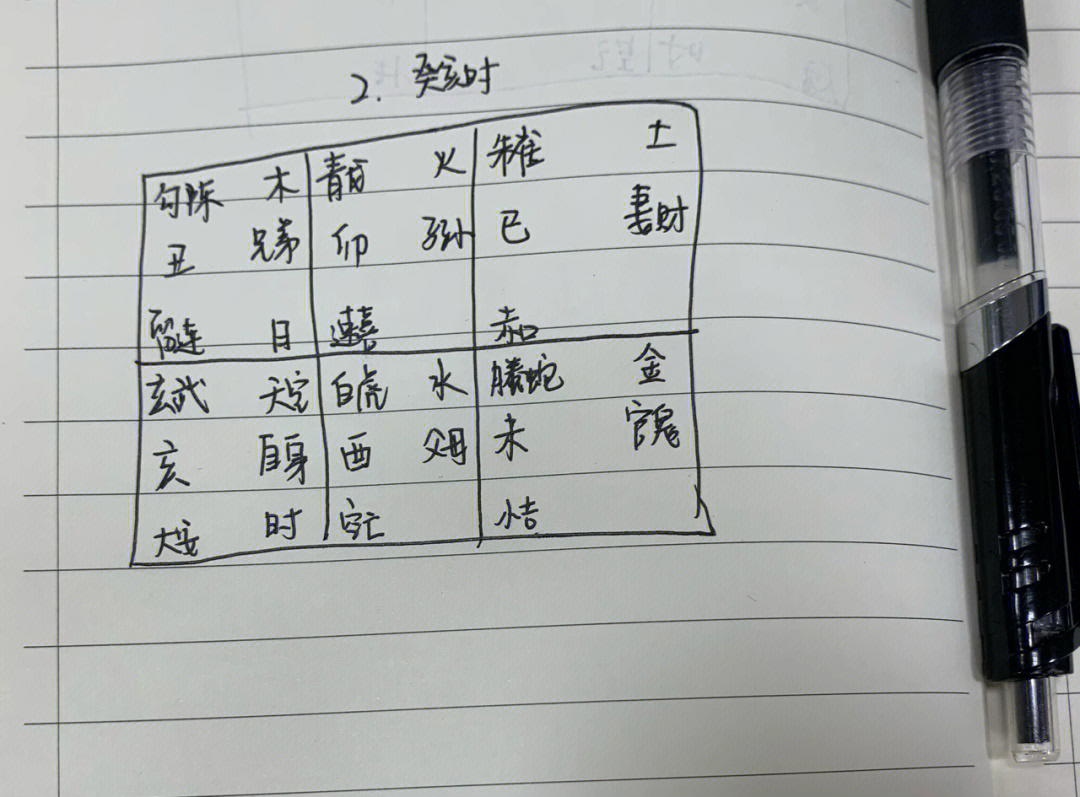 2. 癸亥时
勾陈 木 青 火 朱雀 土
丑 兄弟 卯 子孙 巳 妻财
留连 日 速喜 赤口
玄武 白虎 水 螣蛇 金
亥 自身 酉 父母 未 官鬼
大安 时 空亡 小吉